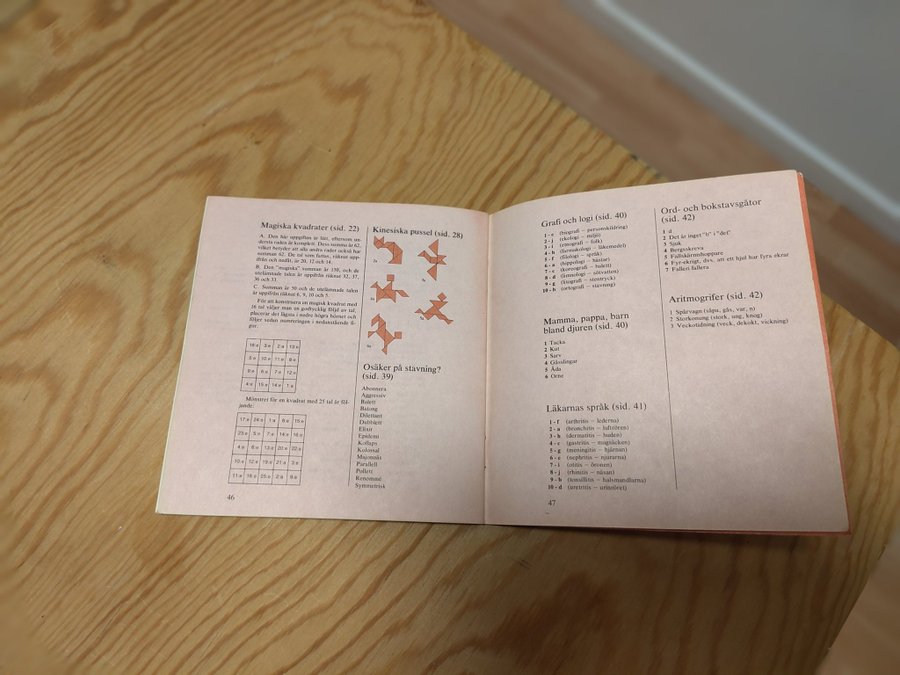 Magiska kvadrater (sid. 22)
A. Den här uppgiften är lätt, eftersom un-
dersta raden är komplett. Dess summa är 62,
vilket betyder att alla andra rader också har
summan 62. De tal som fattas, räknat upp-
ifrån och nedåt, är 20, 12 och 14.
B. Den "magiska" summan är 130, och de
utelämnade talen är uppifrån räknat 32, 37,
36 och 31.
C. Summan är 50 och de utelämnade talen
är uppifrån räknat 6, 9, 10 och 5.
För att konstruera en magisk kvadrat med
16 tal väljer man en godtycklig följd av tal,
placerar det lägsta i nedre högra hörnet och
följer sedan numreringen i nedanstående fi-
gur.
Mönstret för en kvadrat med 25 tal är föl-
jande:
46
Kinesiska pussel (sid. 28)
Osäker på stavning?
(sid. 39)
Abonnera
Aggressiv
Balett
Batong
Dilettant
Dubblett
Elixir
Epidemi
Kollaps
Kolossal
Majonnäs
Parallell
Pollett
Renommé
Symmetrisk
Grafi och logi (sid. 40)
1 - e (biografi – personskildring)
2 - j (ekologi – miljö)
3 - i (etnografi – folk)
4 - h (farmakologi – läkemedel)
5 - f (filologi – språk)
6 - a (hippologi – hästar)
7 - c (koreografi – balett)
8 - d (limnologi – sötvatten)
9 - g (litografi – stentryck)
10 - b (ortografi – stavning)
Mamma, pappa, barn
bland djuren (sid. 40)
1 Tacka
2 Kid
3 Sarv
4 Gåsungar
5 Åda
6 Orne
Läkarnas språk (sid. 41)
1 - f (arthritis – lederna)
2 - a (bronchitis – luftrören)
3 - h (dermatitis – huden)
4 - c (gastritis – magsäcken)
5 - g (meningitis – hjärnan)
6 - e (nephritis – njurarna)
7 - i (otitis – öronen)
8 - j (rhinitis – näsan)
9 - b (tonsillitis – halsmandlarna)
10 - d (uretritis – urinröret)
47
Ord- och bokstavsgåtor
(sid. 42)
1 d
2 Det är inget "b" i "def"
3 Sjuk
4 Bergsskreva
5 Fallskärmshoppare
6 Fyr-ekrigt, dvs. att ett hjul har fyra ekrar
7 Falleri fallera
Aritmogrifer (sid. 42)
1 Spårvagn (såpa, gås, var, n)
2 Storkonung (stork, ung, knog)
3 Veckotidning (veck, dekokt, vickning)